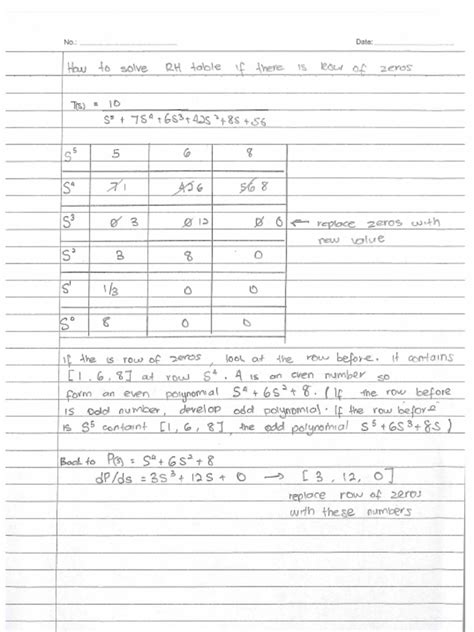 No.:
Date:
How to solve RH table if there is row of zeros
T(s) = 10
S⁵ + 7S⁴ + 6S³ + 42S² + 8S + 56
S⁵ 5 6 8
S⁴ 7 1 42 6 56 8
S³ 0 3 0 12 0 0 ← replace zeros with
new value
S² 3 8 0
S¹ 1/3 0 0
S⁰ 8 0 0
if the is row of zeros, look at the row before. it contains
[1, 6, 8] at row S⁴. 4 is an even number so
form an even polynomial S⁴ + 6S² + 8. (If the row before
is odd number, develop odd polynomial. If the row before
is S⁵ containt [1, 6, 8], the odd polynomial S⁵ + 6S³ + 8S)
Back to P(s) = S⁴ + 6S² + 8
dP/ds = 3S³ + 12S + 0 → [3, 12, 0]
replace row of zeros
with these numbers